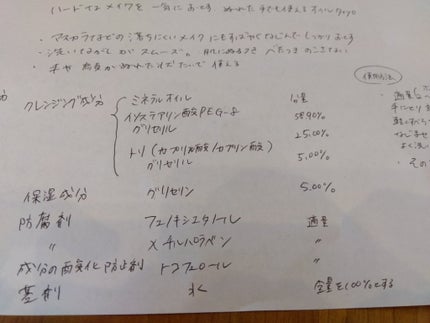 ハードなメイクを一気におとす ぬれた手でも使えるオイルタイプ
・マスカラなどの落ちにくいメイクにもすばやくなじんでしっかりおす
・洗いながしがスムーズ。肌にぬるつき べたつきのこさない
・手や顔がぬれたままで使える
使用方法
・適量
手にとり
よく洗い
・その
クレンジング成分
ミネラルオイル 適量
イソステアリン酸PEG-8グリセリル 58.90%
25.00%
トリ(カプリル酸/カプリン酸)グリセリル 5.00%
保湿成分 グリセリン 5.00%
防腐剤 フェノキシエタノール 適量
〃 メチルパラベン 〃
成分の酸化防止剤 トコフェロール 〃
基剤 水 全量を100%とする